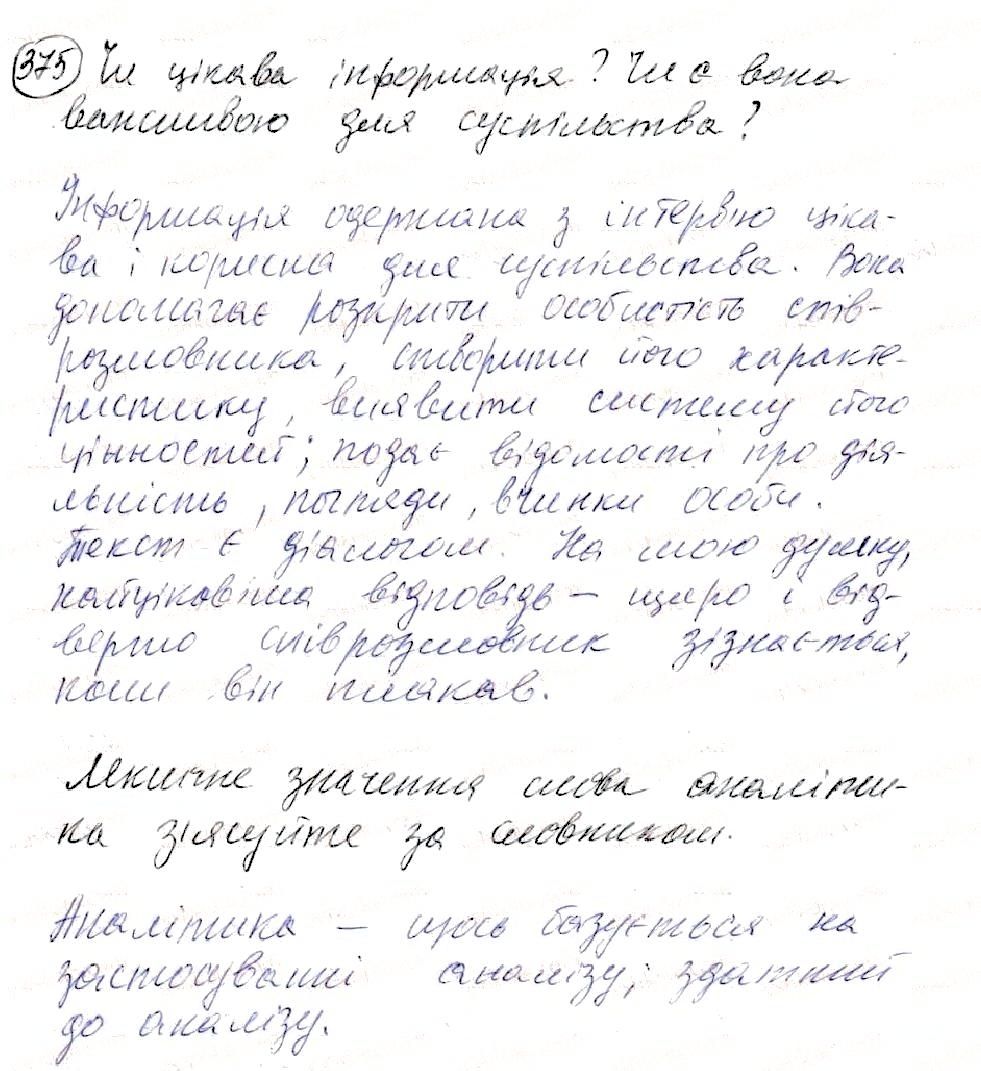 375 Чи цікава інформація? Чи є вона
важливою для суспільства?
Інформація одержана з інтерв'ю ціка-
ва і корисна для суспільства. Вона
допомагає розкрити особистість спів-
розмовника, створити його характе-
ристику, виявити систему його
цінностей; подає відомості про дія-
льність, погляди, вчинки особи.
Текст є діалогом. На мою думку,
найцікавіша відповідь – щиро і від-
верто співрозмовник зізнається,
коли він плакав.
Лексичне значення слова аналіти-
ка з'ясуйте за словником.
Аналітика – щось базується на
застосуванні аналізу; здатний
до аналізу.